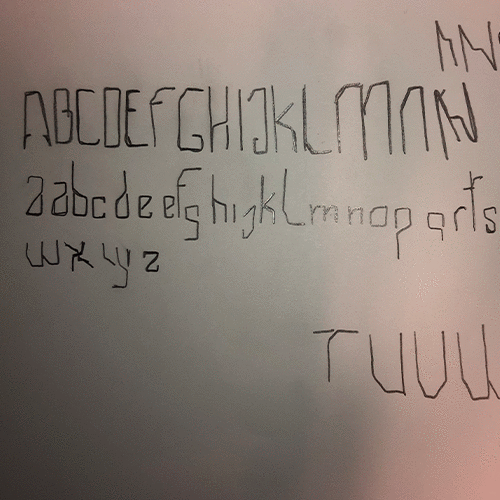 NN
ABCDEFGHIJKLMMNN
aabcdeefghijkLmnopqrts
wxyz
TUUU